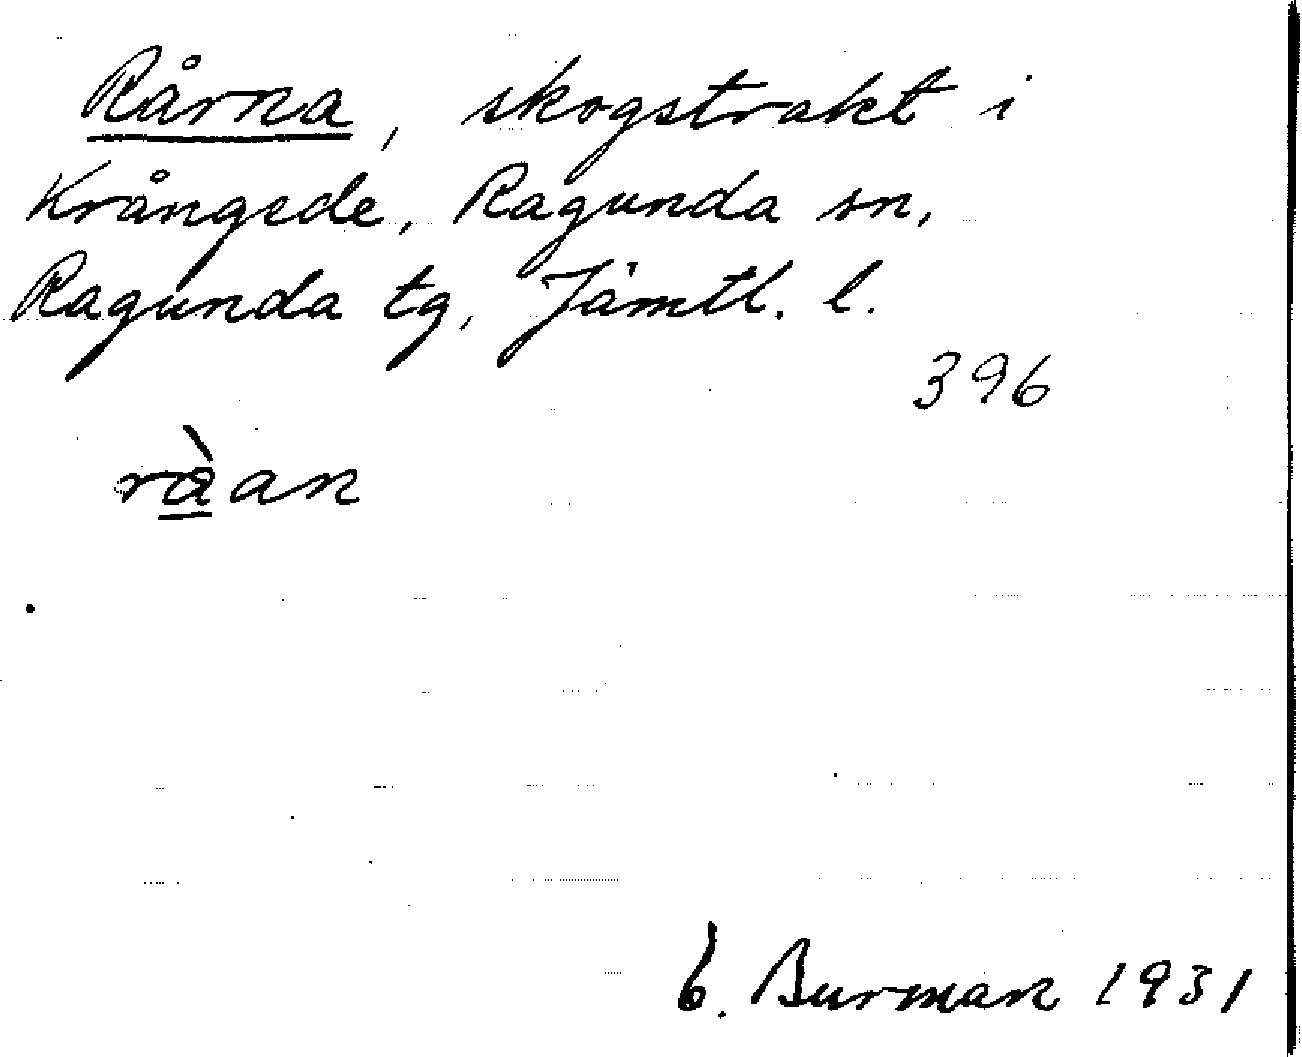 Rårna, skogstrakt i
Krångede, Ragunda sn,
Ragunda tg, Jämtl. l.
396
ràan
Burman 1931